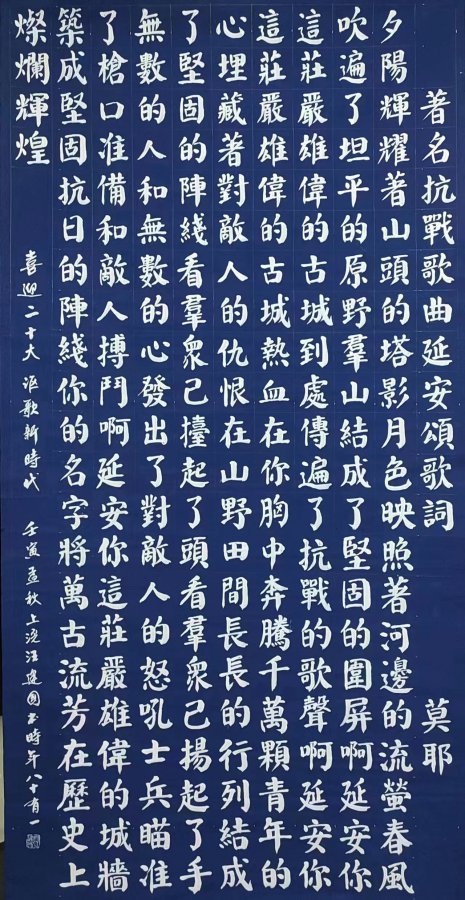 著名抗戰歌曲延安頌歌詞 莫耶
夕陽輝耀著山頭的塔影月色映照著河邊的流螢春風
吹遍了坦平的原野羣山結成了堅固的圍屏啊延安你
這莊嚴雄偉的古城到處傳遍了抗戰的歌聲啊延安你
這莊嚴雄偉的古城熱血在你胸中奔騰千萬顆青年的
心埋藏著對敵人的仇恨在山野田間長長的行列結成
了堅固的陣綫看羣衆已擡起了頭看羣衆已揚起了手
無數的人和無數的心發出了對敵人的怒吼士兵瞄准
了槍口准備和敵人搏鬥啊延安你這莊嚴雄偉的城牆
築成堅固抗日的陣綫你的名字將萬古流芳在歷史上
燦爛輝煌
喜迎二十大 謳歌新時代 壬寅孟秋上浣汪建国书時年八十有一